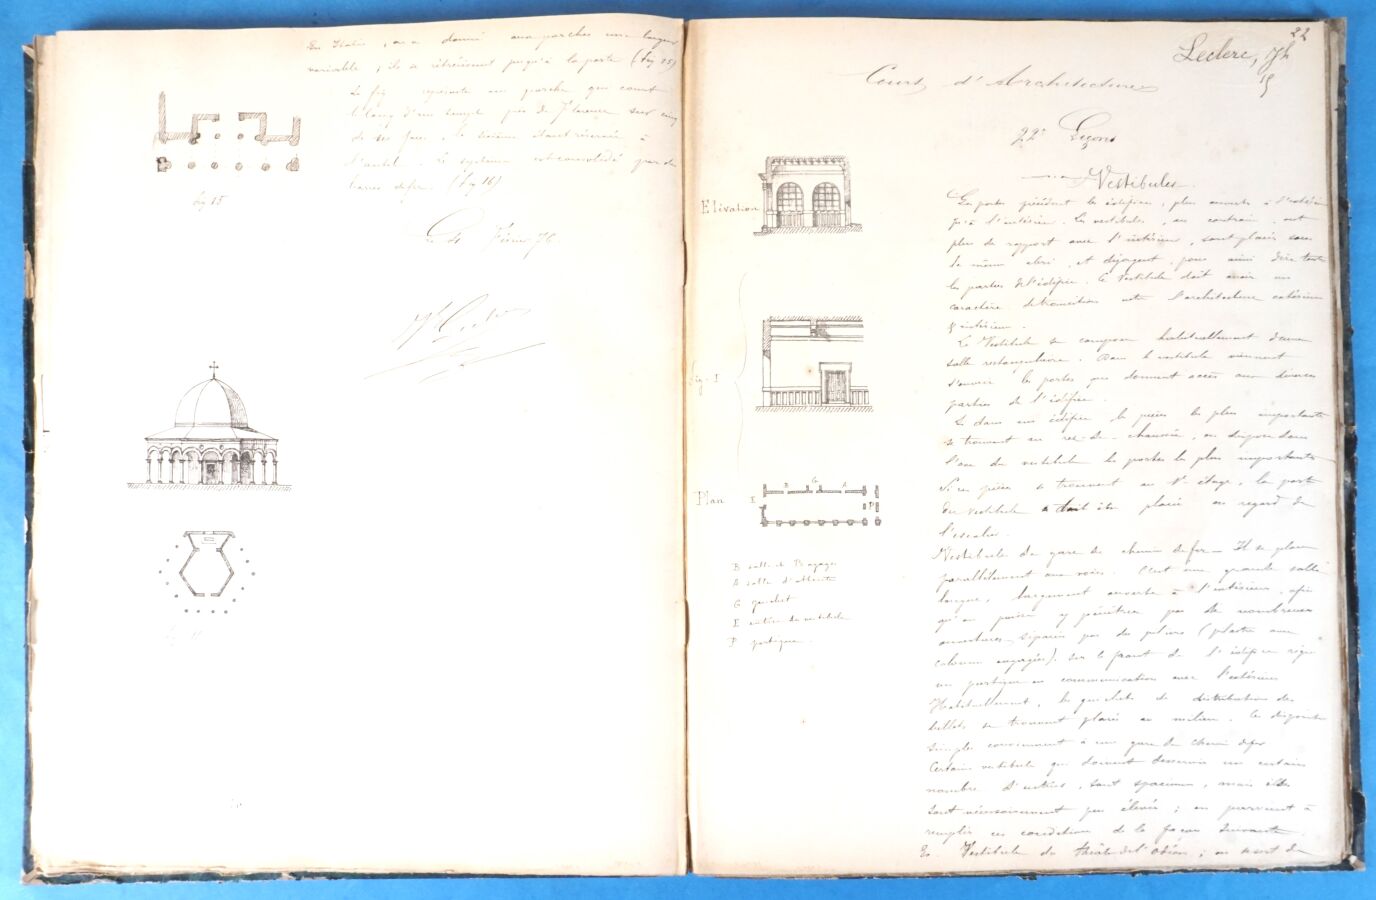 En Italie, on a donné aux porches une largeur
variable, ils se rétrécissent jusqu'à la porte (fig 15)
La fig représente un porche qui court
le long d'un temple près de Florence sur cinq
de ses faces, la sixième étant réservée à
l'autel. Le système est consolidé par des
barres de fer. (fig 16)
fig 15
Le
22
Leclerc, Jh
Cours d'Architecture
22e Leçon
Vestibules
Les portes précèdent les édifices, plus ouverts à l'extérieur
qu'à l'intérieur. Les vestibules, au contraire, ont
plus de rapport avec l'intérieur, sont placés sous
le même abri, et dégagent, pour ainsi dire toutes
les parties de l'édifice. Le vestibule doit avoir un
caractère de transition entre l'architecture extérieure
& intérieure.
Le Vestibule se compose habituellement d'une
salle rectangulaire. Dans le vestibule viennent
s'ouvrir les portes qui donnent accès aux diverses
parties de l'édifice.
Si dans un édifice les pièces les plus importantes
se trouvent au rez-de-chaussée, on dispose dans
l'axe du vestibule les portes les plus importantes
Si ces pièces se trouvent au 1er étage, la porte
du vestibule doit être placée en regard de
l'escalier.
Vestibule de gare de chemin de fer - Il se place
parallèlement aux voies. C'est une grande salle
longue, largement ouverte à l'intérieur, afin
qu'on puisse y pénétrer par de nombreuses
ouvertures, séparées par des piliers (pilastre avec
colonnes engagées). Sur le front de l'édifice règne
un portique en communication avec l'extérieur
Habituellement, les guichets de distribution des
billets se trouvent placés au milieu. Ces dispositions
simples conviennent à une gare de chemin de fer
Certains vestibules qui doivent desservir un certain
nombre d'entrées, sont spacieux, mais
sont nécessairement peu élevés; on parvient à
remplir ces conditions de la façon suivante.
Ex. Vestibule du théâtre de l'Odéon; on se sert de
Elévation
Fig. I
Plan
E
B
G
A
P
B salle de Bagages
A salle d'Attente
G guichet
E entrée du vestibule
P portique.